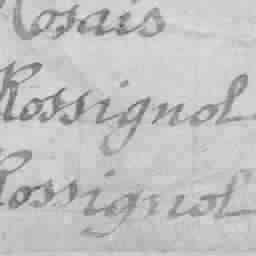 Rosais
Rossignol
Rossignol